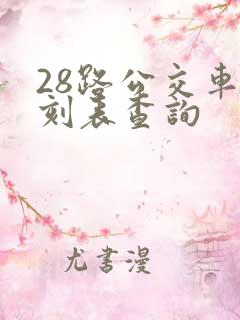 28路公交車
刻表查詢
尤書漫